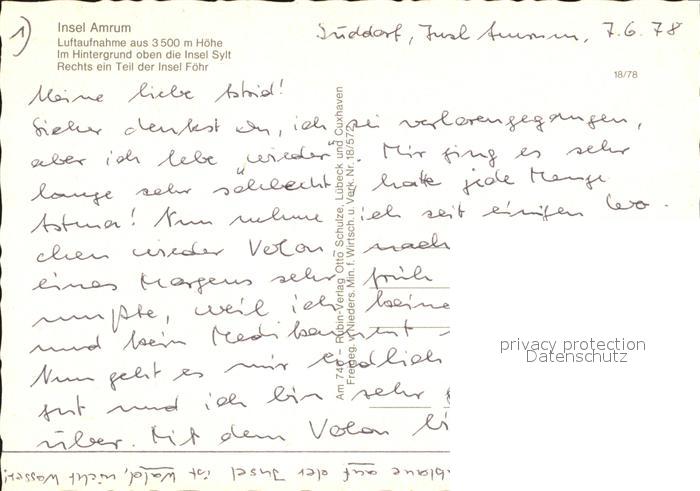 1)
Insel Amrum
Luftaufnahme aus 3500 m Höhe
Im Hintergrund oben die Insel Sylt
Rechts ein Teil der Insel Föhr
Süddorf, Insl Amrum, 7.6.78
18/78
Meine liebe Astrid!
Sicher denkst du, ich sei verlorengegangen,
aber ich lebe "wieder". Mir ging es sehr
lange sehr schlecht, hatte jede Menge
Astma! Nun nehme ich seit einigen Wo-
chen wieder Volon, nach
eines Morgens sehr früh
mußte, weil ich keine
und kein Medikament
Nun geht es mir endlich
gut und ich bin sehr
über. Mit dem Volon
blaue auf der Insel ist Wald, nicht Wasser!
Am 746 – Rubin-Verlag Otto Schulze, Lübeck und Cuxhaven
Freigeg. v. Nieders. Min. f. Wirtsch. u. Verk. Nr. 18/572
privacy protection
Datenschutz